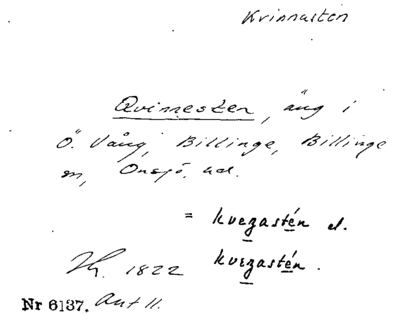 Kvinnasten
Qvinnesten, äng i
Ö. Vång, Billinge, Billinge
sn, Onsjö, hd.
= kvezastén el.
kvezastén.
Hy. 1822
Nr 6137. Ant 11.